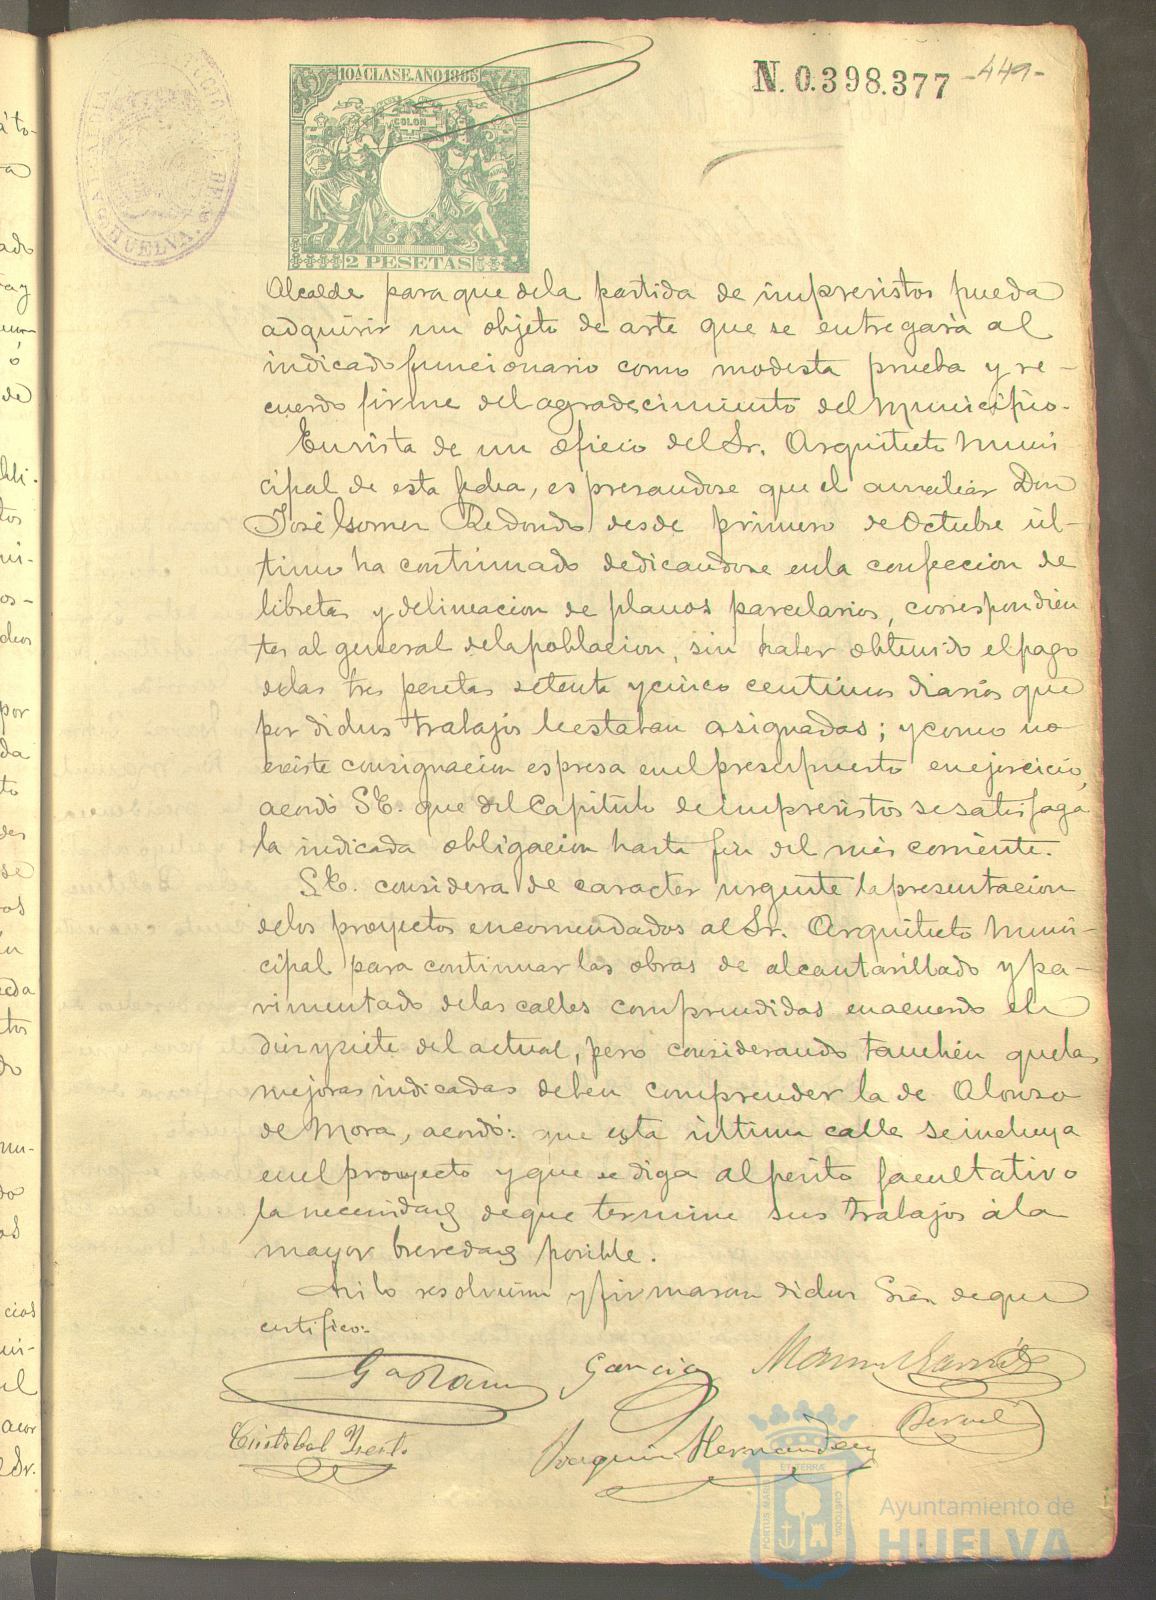 10ª CLASE. AÑO 1885
COLON
2 PESETAS
N. 0.398.377
-449-
HUELVA
Alcalde para que dela partida de imprevistos pueda
adquirir un objeto de arte que se entregará al
indicado funcionario como modesta prueba y re-
cuerdo firme del agradecimiento del Municipio.
En vista de un oficio del Sr. Arquitecto Muni-
cipal de esta fecha, espresandose que el auxiliar Don
José Gomez Redondo desde primero de Octubre úl-
timo ha continuado dedicandose en la confeccion de
libretas y delineacion de planos parcelarios, correspondien
tes al general dela poblacion, sin haber obtenido el pago
delas tres pesetas setenta y cinco centimos diarios que
por dichos trabajos le estaban asignadas; y como no
existe consignacion espresa en el presupuesto en ejercicio,
acordó S.E. que del Capitulo de imprevistos se satisfaga
la indicada obligacion hasta fin del mes corriente.
S.E. considera de caracter urgente la presentacion
delos proyectos encomendados al Sr. Arquitecto Muni-
cipal para continuar las obras de alcantarillado y pa-
vimentado de las calles comprendidas en acuerdo del
diez y siete del actual, pero considerando tambien que las
mejoras indicadas deben comprender la de Alonso
de Mora, acordó: que esta última calle se incluya
en el proyecto y que se diga al perito facultativo
la necesidad de que termine sus trabajos á la
mayor brevedad posible.
Asi lo resolvieron y firmaran dichos Sres. de que
certifico:
Garcia
Cristobal
Joaquin Hernandez
PORTUS MARIS
ET TERRÆ
CUSTODIA
Ayuntamiento de
HUELVA